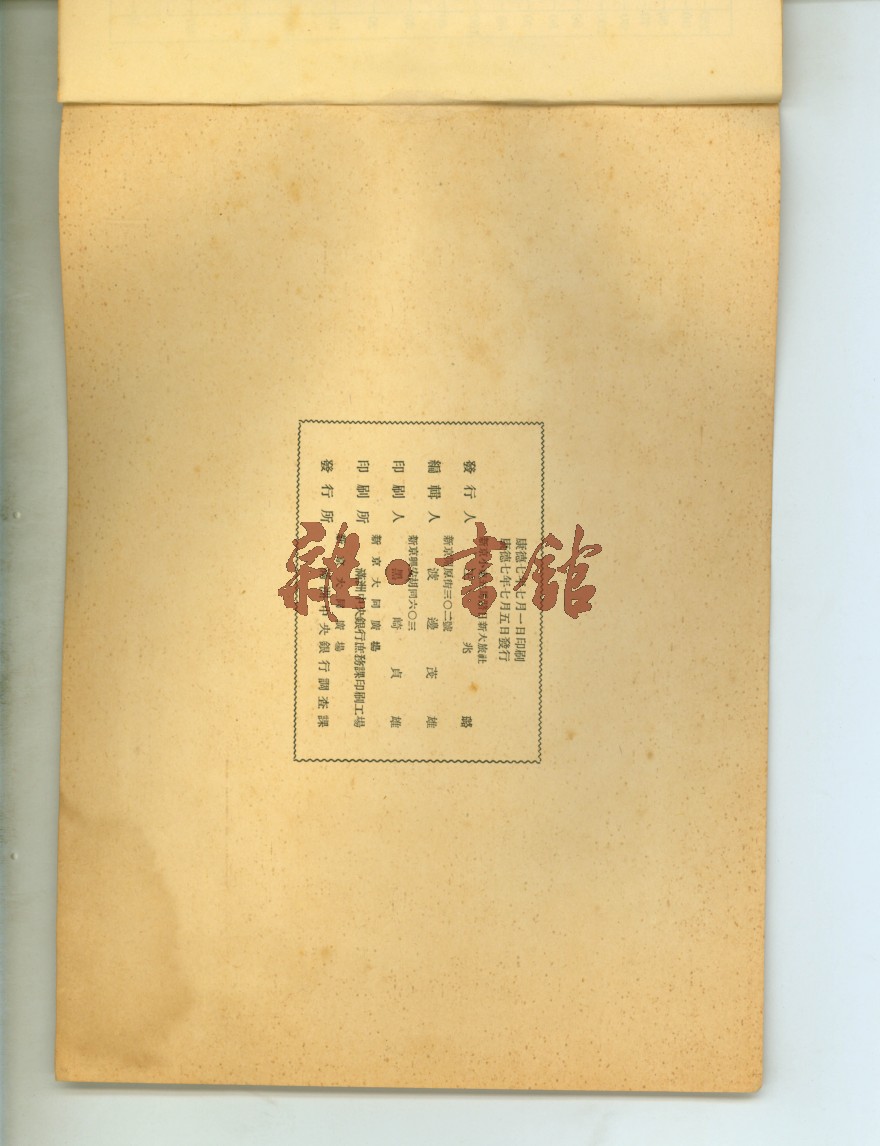 康德七年七月一日印刷
康德七年七月五日發行
新大旅社
發行人 兆 〓
新京 原街三〇二號
編輯人 渡邊茂雄
新京興安胡同六〇三
印刷人 黑崎貞雄
新京大同廣場
印刷所 滿洲中央銀行庶務課印刷工場
新京大同廣場
發行所 滿洲中央銀行調査課
書館